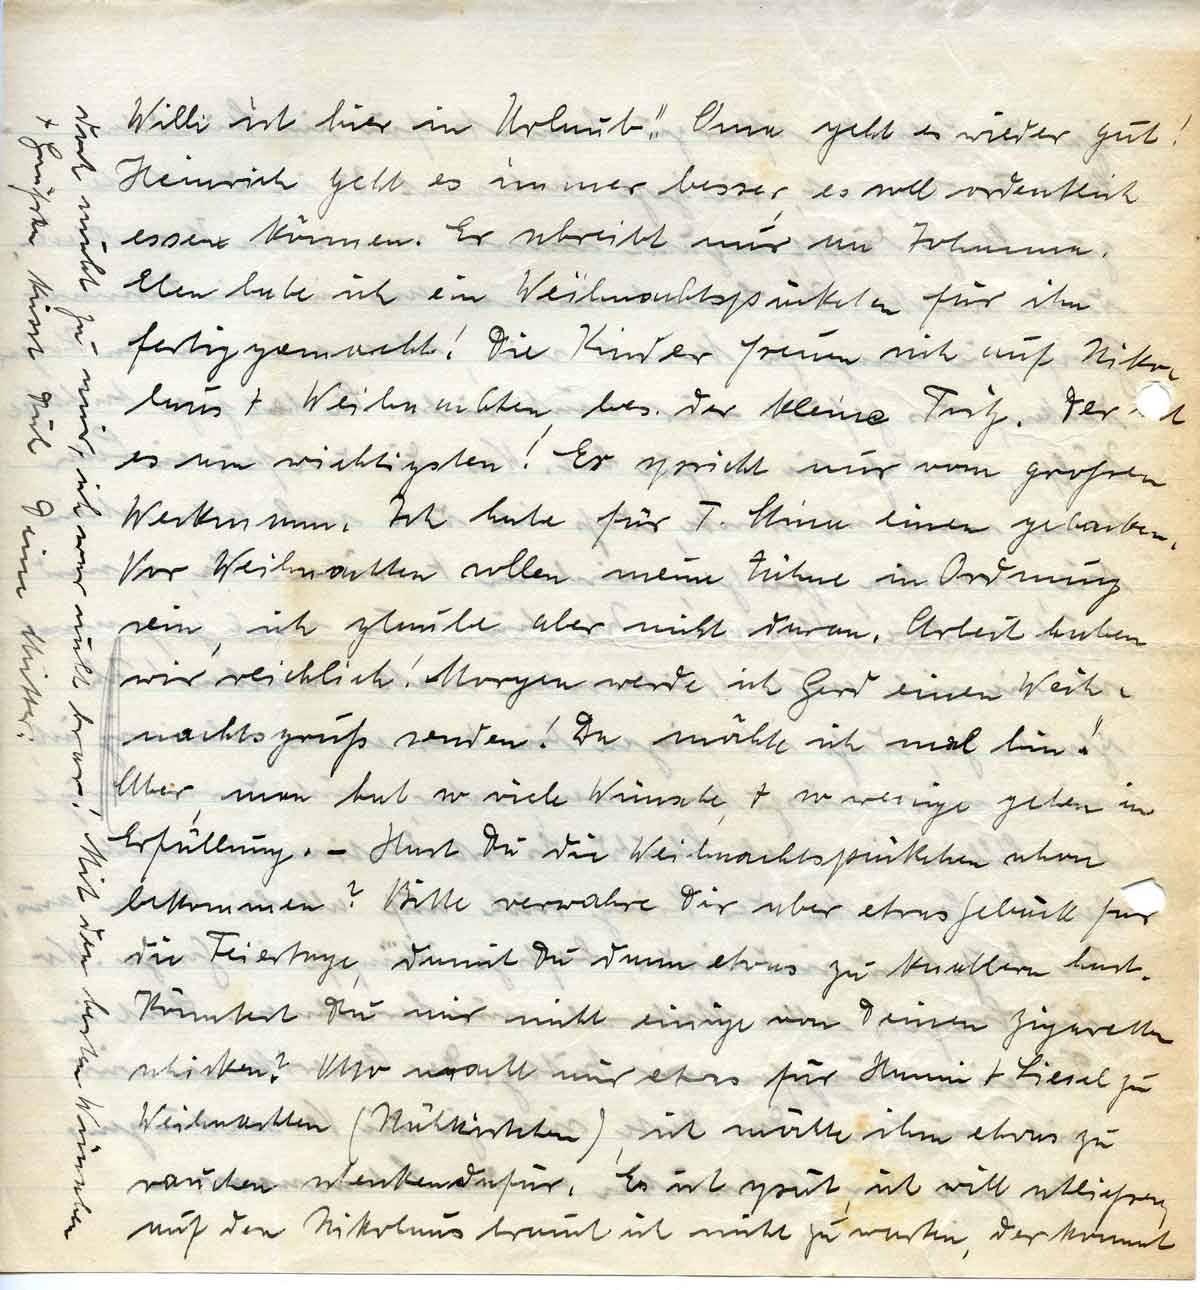 Willi ist hier in Urlaub!! Oma geht es wieder gut!
Heinrich geht es immer besser, es soll ordentlich
essen können. Er schreibt nur an Johanna.
Eben habe ich ein Weihnachtspäckchen für ihn
fertiggemacht! Die Kinder freuen sich auf Niko-
laus + Weihnachten, bes. der kleine Fritz. Der hat
es am wichtigsten! Er spricht nur vom großen
Weckmann. Ich habe für T. Mina einen gebacken.
Vor Weihnachten sollen meine Zähne in Ordnung
sein, ich glaube aber nicht daran. Arbeit haben
wir reichlich! Morgen werde ich Gerd einen Weih-
nachtsgruß senden! Da möchte ich mal hin!!
Aber, man hat so viele Wünsche, + so wenige gehen in
Erfüllung. – Hast Du die Weihnachtspäckchen schon
bekommen? Bitte verwahre Dir aber etwas Gebäck für
die Feiertage, damit Du dann etwas zu knabbern hast.
Könntest Du mir nicht einige von Deinen Zigaretten
schicken? Otto macht mir etwas für Hanni + Liesel zu
Weihnachten (Nähkästchen), ich möchte ihm etwas zu
rauchen schenken dafür. Es ist spät, ich will schließen,
auf den Nikolaus brauch ich nicht zu warten, der kommt
doch nicht zu mir, ich war nicht brav! Mit den besten Wünschen
+ Grüßen küsst Dich Deine Mutter.